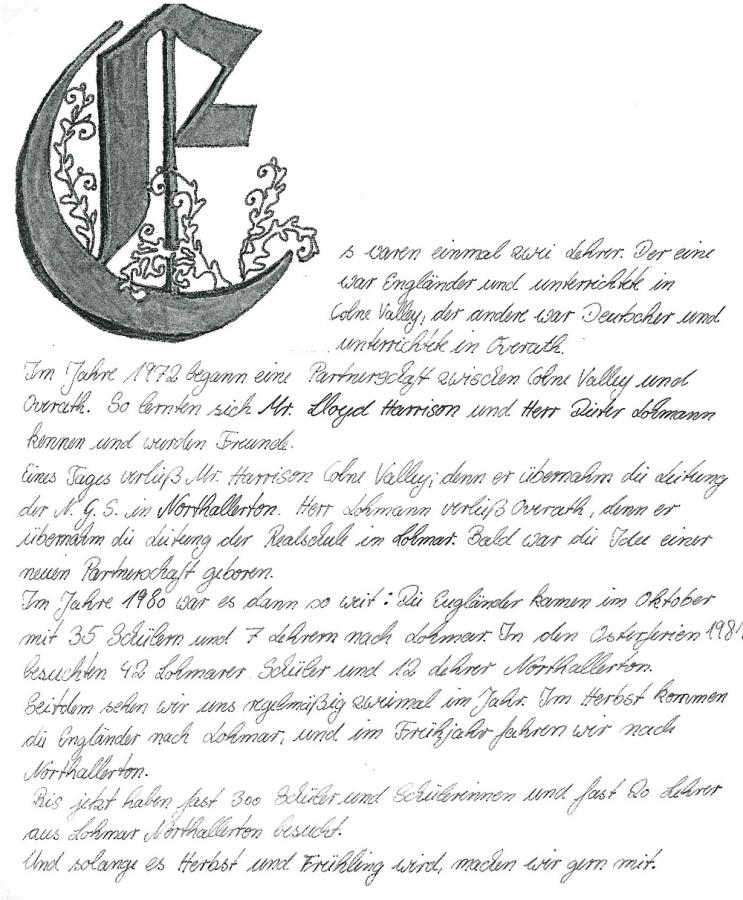 Es waren einmal zwei Lehrer. Der eine
war Engländer und unterrichtete in
Colne Valley, der andere war Deutscher und
unterrichtete in Overath.
Im Jahre 1972 begann eine Partnerschaft zwischen Colne Valley und
Overath. So lernten sich Mr. Lloyd Harrison und Herr Dieter Lohmann
kennen und wurden Freunde.
Eines Tages verließ Mr. Harrison Colne Valley; denn er übernahm die Leitung
der N. G. S. in Northallerton. Herr Lohmann verließ Overath, denn er
übernahm die Leitung der Realschule in Lohmar. Bald war die Idee einer
neuen Partnerschaft geboren.
Im Jahre 1980 war es dann so weit: Die Engländer kamen im Oktober
mit 35 Schülern und 7 Lehrern nach Lohmar. In den Osterferien 1981
besuchten 42 Lohmarer Schüler und 12 Lehrer Northallerton.
Seitdem sehen wir uns regelmäßig zweimal im Jahr. Im Herbst kommen
die Engländer nach Lohmar, und im Frühjahr fahren wir nach
Northallerton.
Bis jetzt haben fast 300 Schüler und Schülerinnen und fast 20 Lehrer
aus Lohmar Northallerton besucht.
Und solange es Herbst und Frühling wird, machen wir gern mit.